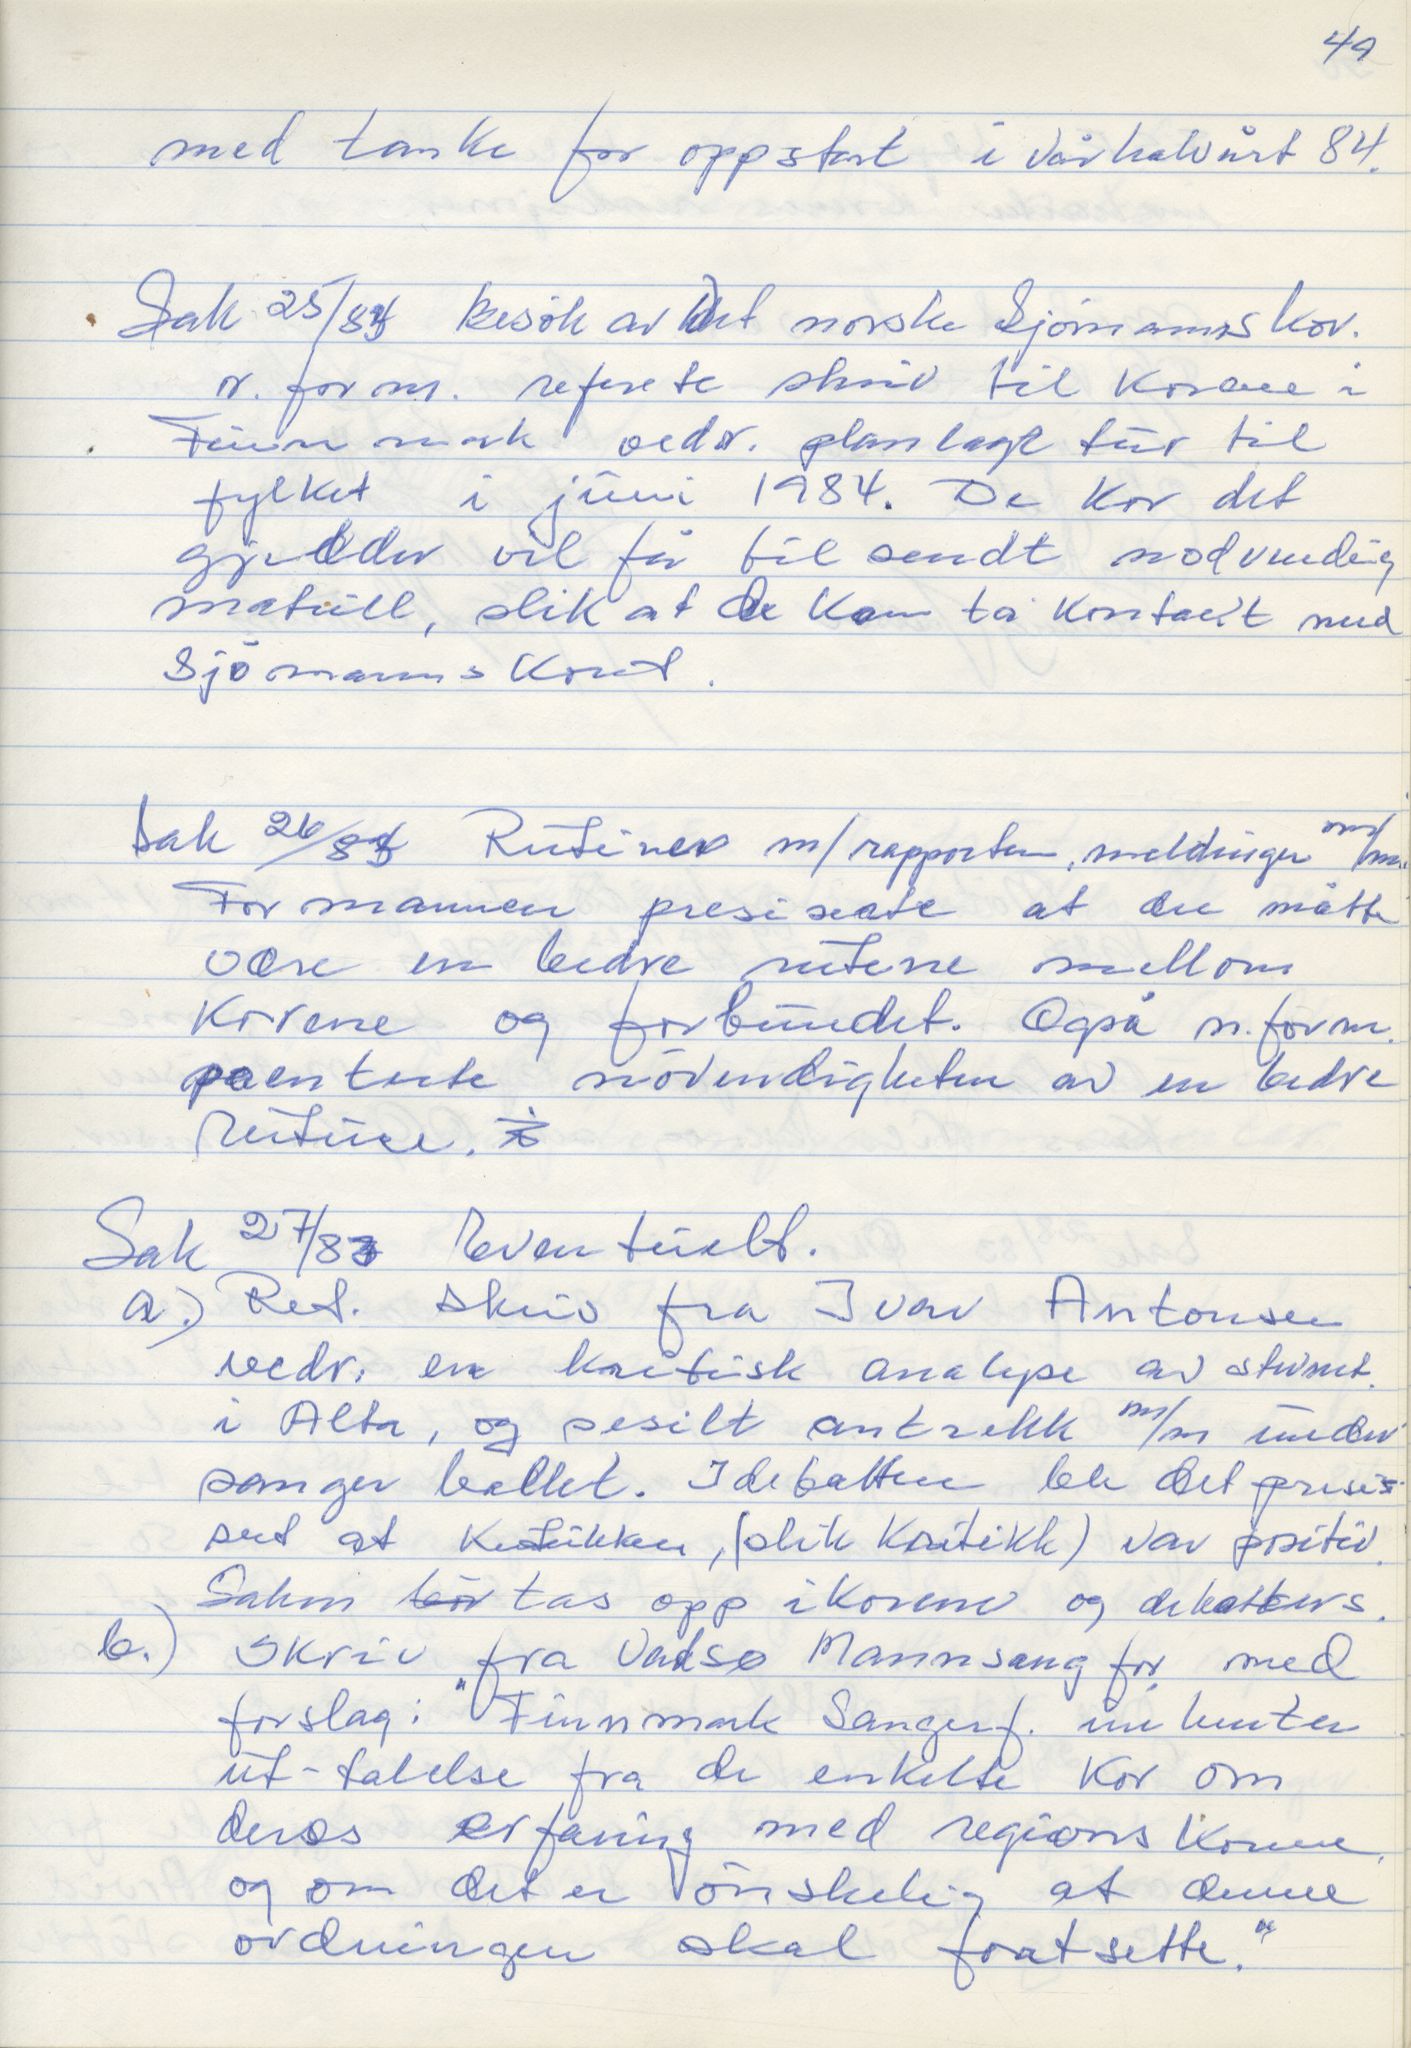 49
med tanke for oppstart i vårhalvårt 84.
Sak 25/83 Besök av det norske Sjömannskor.
n. form. referete skriv til korene i
Finnmark vedr. planlagt tur til
fylket i juni 1984. De kor det
gjelder vil få tilsendt nødvendig
matriell, slik at de kan ta kontakt med
Sjömannskoret.
Sak 26/83 Rutiner m/rapporten, meldinger m/m.
Formannen presiserte at det måtte
være en bedre rutene mellom
korene og forbundet. Også n.form.
poenterte növendigheten av en bedre
rutine.
Sak 27/83 Eventuelt.
a.) Ref. skriv fra Ivar Antonsen
vedr. en kritisk analyse av stevnet
i Alta, og sesilt antrekk m/m under
sangerballet. I debatten ble det presis-
sert at kritikken, (slik kritikk) var positiv.
Saken bör tas opp i korene og debatters.
b.) Skriv fra Vadsø Mannsangfor. med
forslag: "Finnmark Sangerf. innhenter
ut-talelse fra de enkelte kor om
deres erfaring med regionskorene,
og om det er önskelig at denne
ordningen skal fortsette."